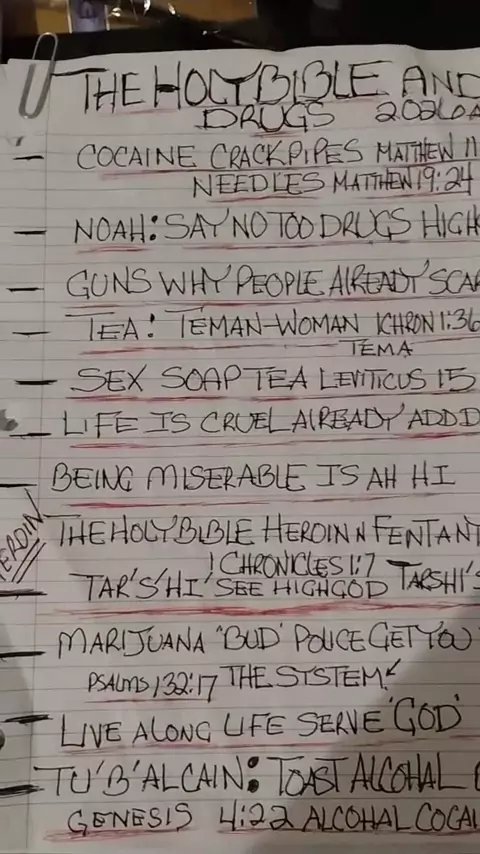 THE HOLY BIBLE AND
DRUGS
COCAINE CRACKPIPES MATTHEW 11
NEEDLES MATTHEW 19:24
NOAH: SAY NO TOO DRUGS HIGH
GUNS WHY PEOPLE ALREADY SCAR
TEA: TEMAN-WOMAN 1CHRON 1:36
TEMA
SEX SOAP TEA LEVITICUS 15
LIFE IS CRUEL ALREADY ADDD
BEING MISERABLE IS AH HI
HEROIN
THE HOLY BIBLE HEROIN N FENTANY
1 CHRONICLES 1:7
TAR'S'HI' SEE HIGH GOD TARSHI'S
MARIJUANA 'BUD' POLICE GET YOU
PSALMS 132:17 THE SYSTEM
LIVE ALONG LIFE SERVE 'GOD'
TU'B'ALCAIN: TOAST ALCOHAL
GENESIS 4:22 ALCOHAL COCAI